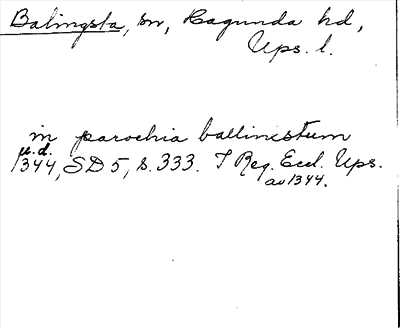 Balingsta, sn, Hagunda hd,
Ups. l.
in parochia ballinxstum
u.d.
1344, SD 5, s. 333. I Reg. Eccl. Ups.
av 1344.